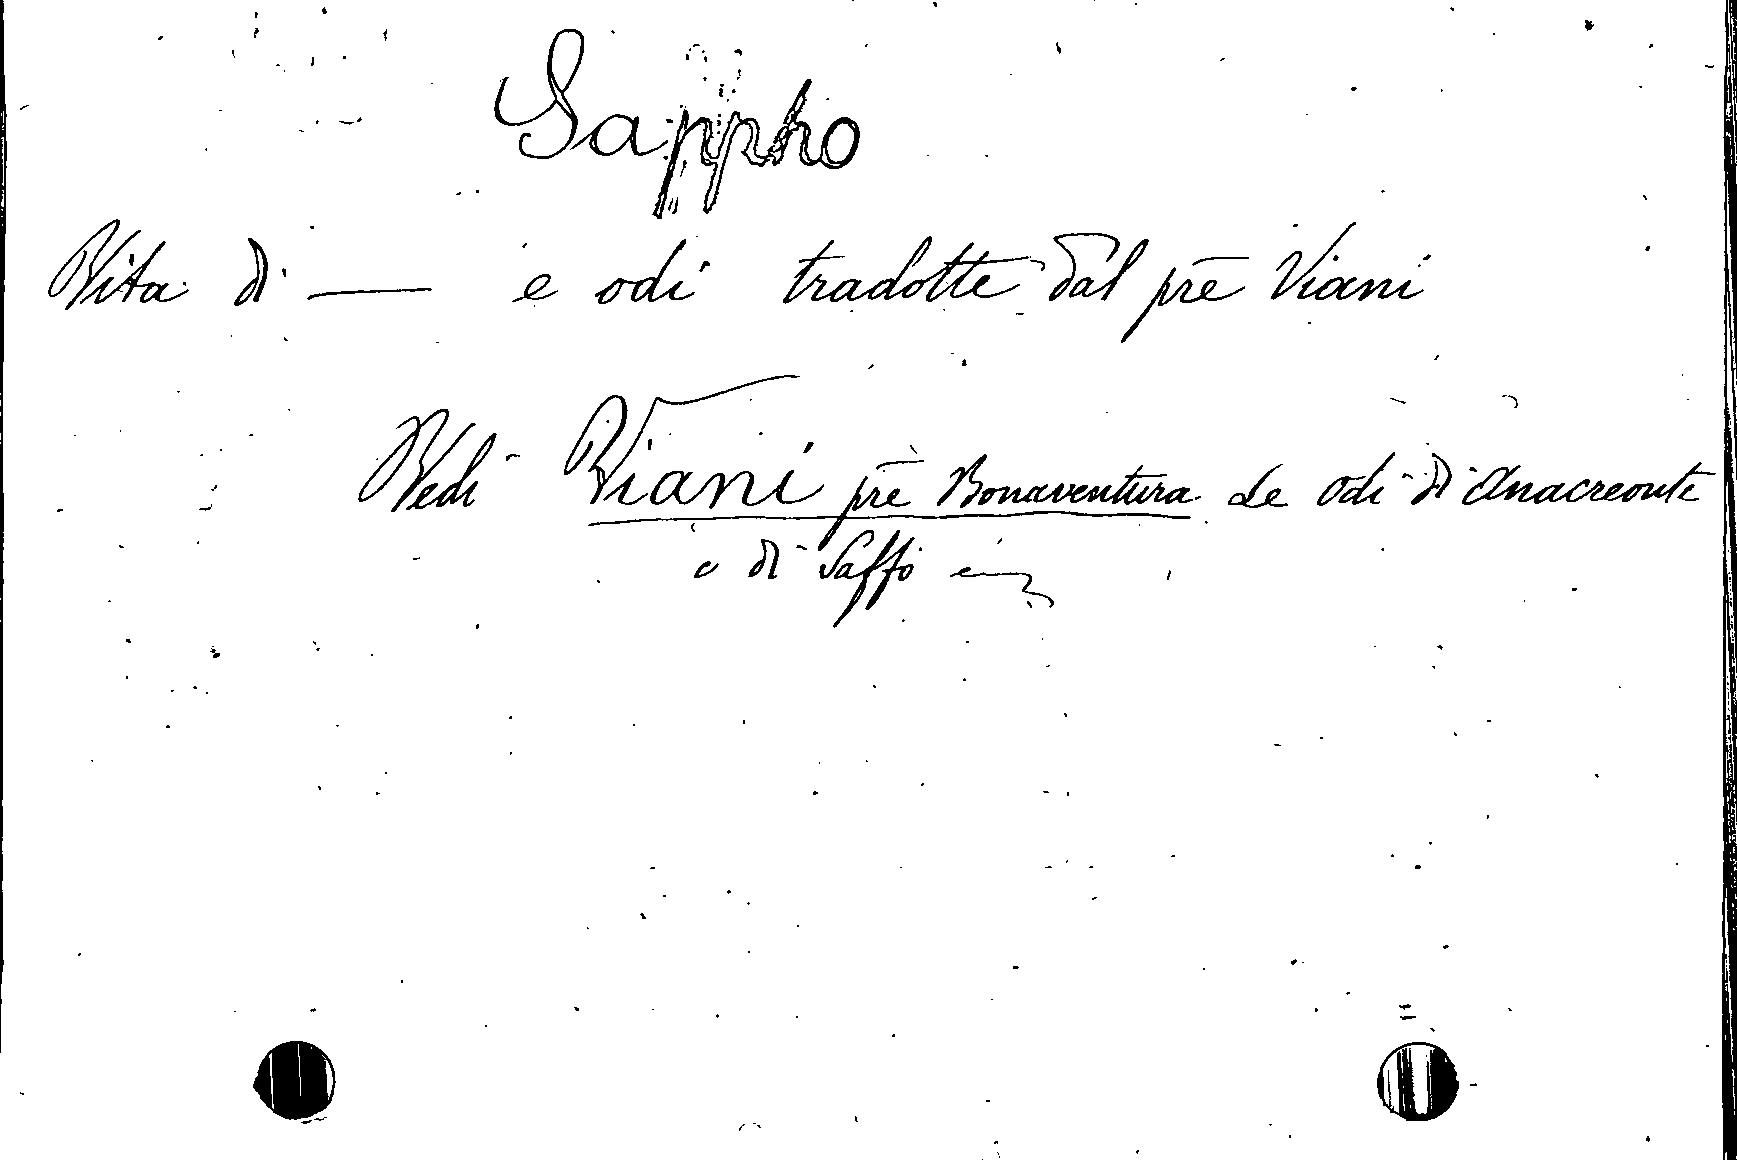 Sappho
Vita di — e odi tradotte dal pre Viani
Vedi Viani pre Bonaventura Le odi di Anacreonte
e di Saffo